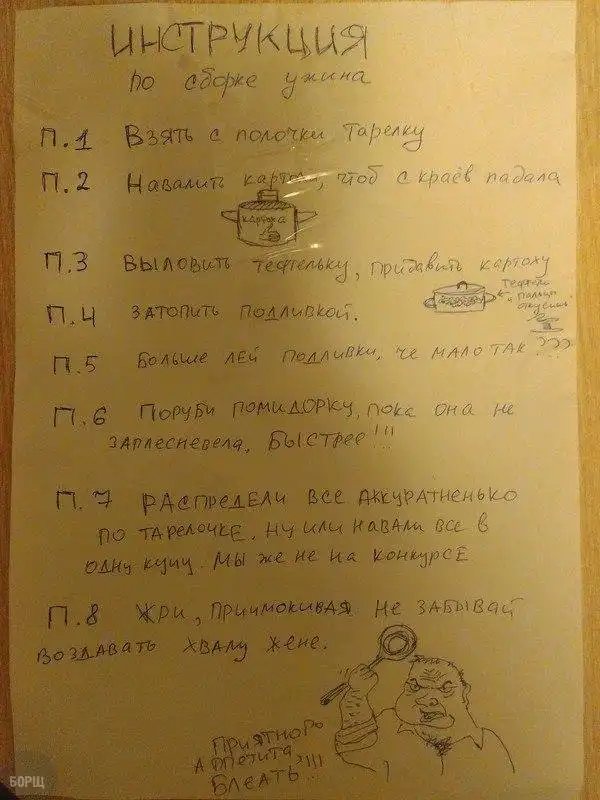 ИНСТРУКЦИЯ
по сборке ужина
П.1 Взять с полочки тарелку
П.2 Навалить картохи, чтоб с краёв падала
картоха
П.3 Выловить тефтельку, придавить картоху
Тефтели
пальцы
откусишь
П.4 Затопить подливкой.
П.5 Больше лей подливки, че мало так ???
П.6 Поруби помидорку, пока она не
заплесневела, быстрее!!!
П.7 Распредели все аккуратненько
по тарелочке. Ну или навали все в
одну кучу. Мы же не на конкурсе
П.8 Жри, причмокивая не забывай
воздавать хвалу жене.
Приятного
аппетита
блеать!!!
БОРЩ